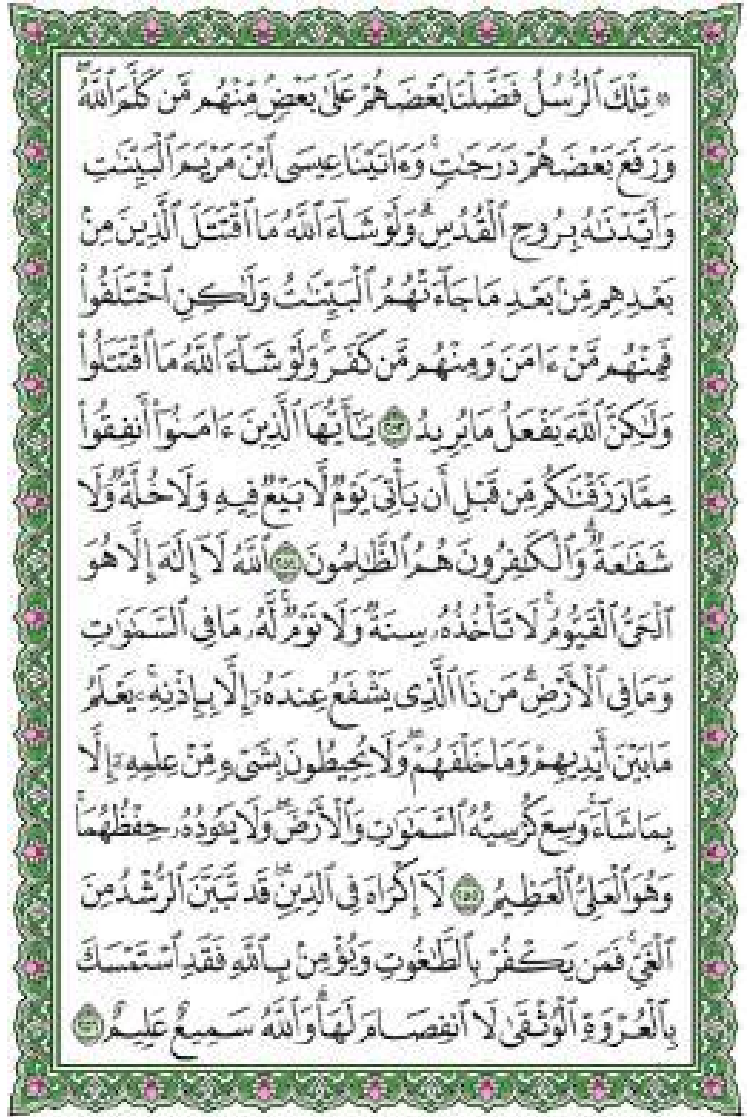 ۞ تِلْكَ ٱلرُّسُلُ فَضَّلْنَا بَعْضَهُمْ عَلَىٰ بَعْضٍ مِّنْهُم مَّن كَلَّمَ ٱللَّهُ
وَرَفَعَ بَعْضَهُمْ دَرَجَٰتٍ وَءَاتَيْنَا عِيسَى ٱبْنَ مَرْيَمَ ٱلْبَيِّنَٰتِ
وَأَيَّدْنَٰهُ بِرُوحِ ٱلْقُدُسِ وَلَوْ شَآءَ ٱللَّهُ مَا ٱقْتَتَلَ ٱلَّذِينَ مِنۢ
بَعْدِهِم مِّنۢ بَعْدِ مَا جَآءَتْهُمُ ٱلْبَيِّنَٰتُ وَلَٰكِنِ ٱخْتَلَفُوا۟
فَمِنْهُم مَّنْ ءَامَنَ وَمِنْهُم مَّن كَفَرَ وَلَوْ شَآءَ ٱللَّهُ مَا ٱقْتَتَلُوا۟
وَلَٰكِنَّ ٱللَّهَ يَفْعَلُ مَا يُرِيدُ ٢٥٣ يَٰٓأَيُّهَا ٱلَّذِينَ ءَامَنُوٓا۟ أَنفِقُوا۟
مِمَّا رَزَقْنَٰكُم مِّن قَبْلِ أَن يَأْتِىَ يَوْمٌ لَّا بَيْعٌ فِيهِ وَلَا خُلَّةٌ وَلَا
شَفَٰعَةٌ وَٱلْكَٰفِرُونَ هُمُ ٱلظَّٰلِمُونَ ٢٥٤ ٱللَّهُ لَآ إِلَٰهَ إِلَّا هُوَ
ٱلْحَىُّ ٱلْقَيُّومُ لَا تَأْخُذُهُۥ سِنَةٌ وَلَا نَوْمٌ لَّهُۥ مَا فِى ٱلسَّمَٰوَٰتِ
وَمَا فِى ٱلْأَرْضِ مَن ذَا ٱلَّذِى يَشْفَعُ عِندَهُۥٓ إِلَّا بِإِذْنِهِۦ يَعْلَمُ
مَا بَيْنَ أَيْدِيهِمْ وَمَا خَلْفَهُمْ وَلَا يُحِيطُونَ بِشَىْءٍ مِّنْ عِلْمِهِۦٓ إِلَّا
بِمَا شَآءَ وَسِعَ كُرْسِيُّهُ ٱلسَّمَٰوَٰتِ وَٱلْأَرْضَ وَلَا يَـُٔودُهُۥ حِفْظُهُمَا
وَهُوَ ٱلْعَلِىُّ ٱلْعَظِيمُ ٢٥٥ لَآ إِكْرَاهَ فِى ٱلدِّينِ قَد تَّبَيَّنَ ٱلرُّشْدُ مِنَ
ٱلْغَىِّ فَمَن يَكْفُرْ بِٱلطَّٰغُوتِ وَيُؤْمِنۢ بِٱللَّهِ فَقَدِ ٱسْتَمْسَكَ
بِٱلْعُرْوَةِ ٱلْوُثْقَىٰ لَا ٱنفِصَامَ لَهَا وَٱللَّهُ سَمِيعٌ عَلِيمٌ ٢٥٦